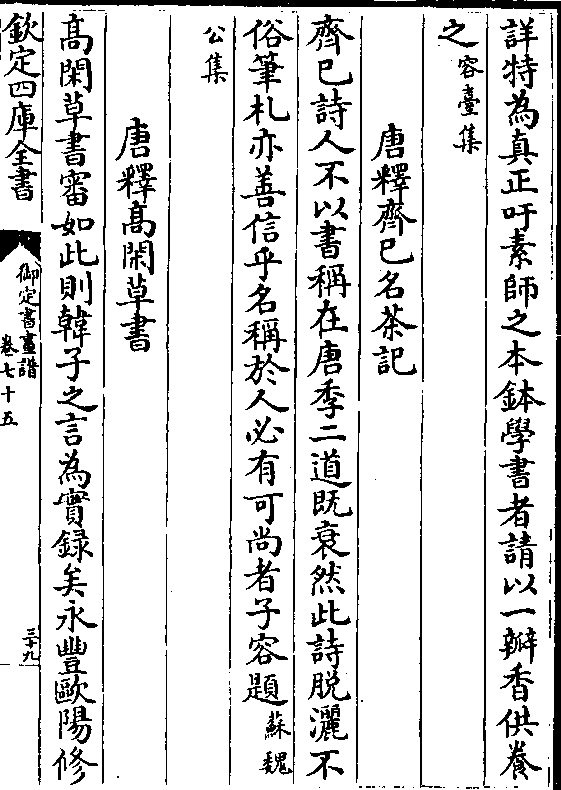 詳特為真正吁素師之本鉢學書者請以一瓣香供養
之容臺集
唐釋齊已名茶記
齊已詩人不以書稱在唐季二道既衰然此詩脫灑不
俗筆札亦善信乎名稱於人必有可尚者子容題蘇魏
公集
唐釋高閑草書
高閑草書審如此則韓子之言為實録矣永豐歐陽修
欽定四庫全書
御定書畫譜
卷七十五
三十九